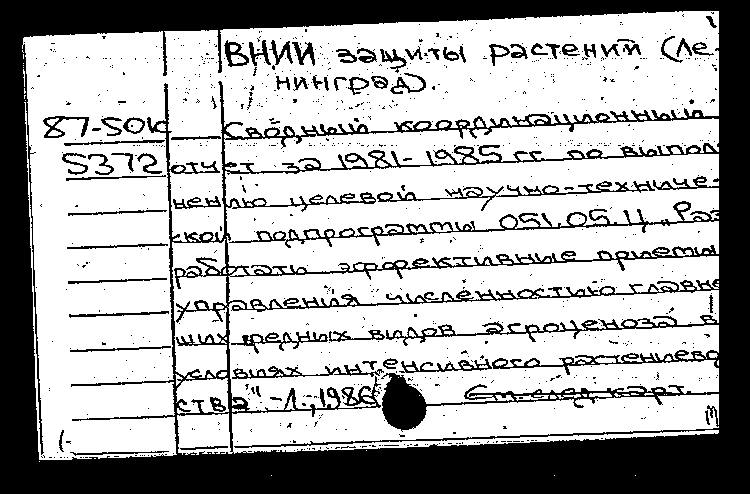 ВНИИ защиты растений (Ле-
нинград).
87-50к Сводный координационный
5372 отчет за 1981-1985 гг. по выпол
нению целевой научно-техниче-
ской подпрограммы 051.05.Ц „Раз
работать эффективные приемы
управления численностью главне
ших вредных видов агроценоза в
условиях интенсивного растениево
ства" -Л., 1986 См. след. карт.